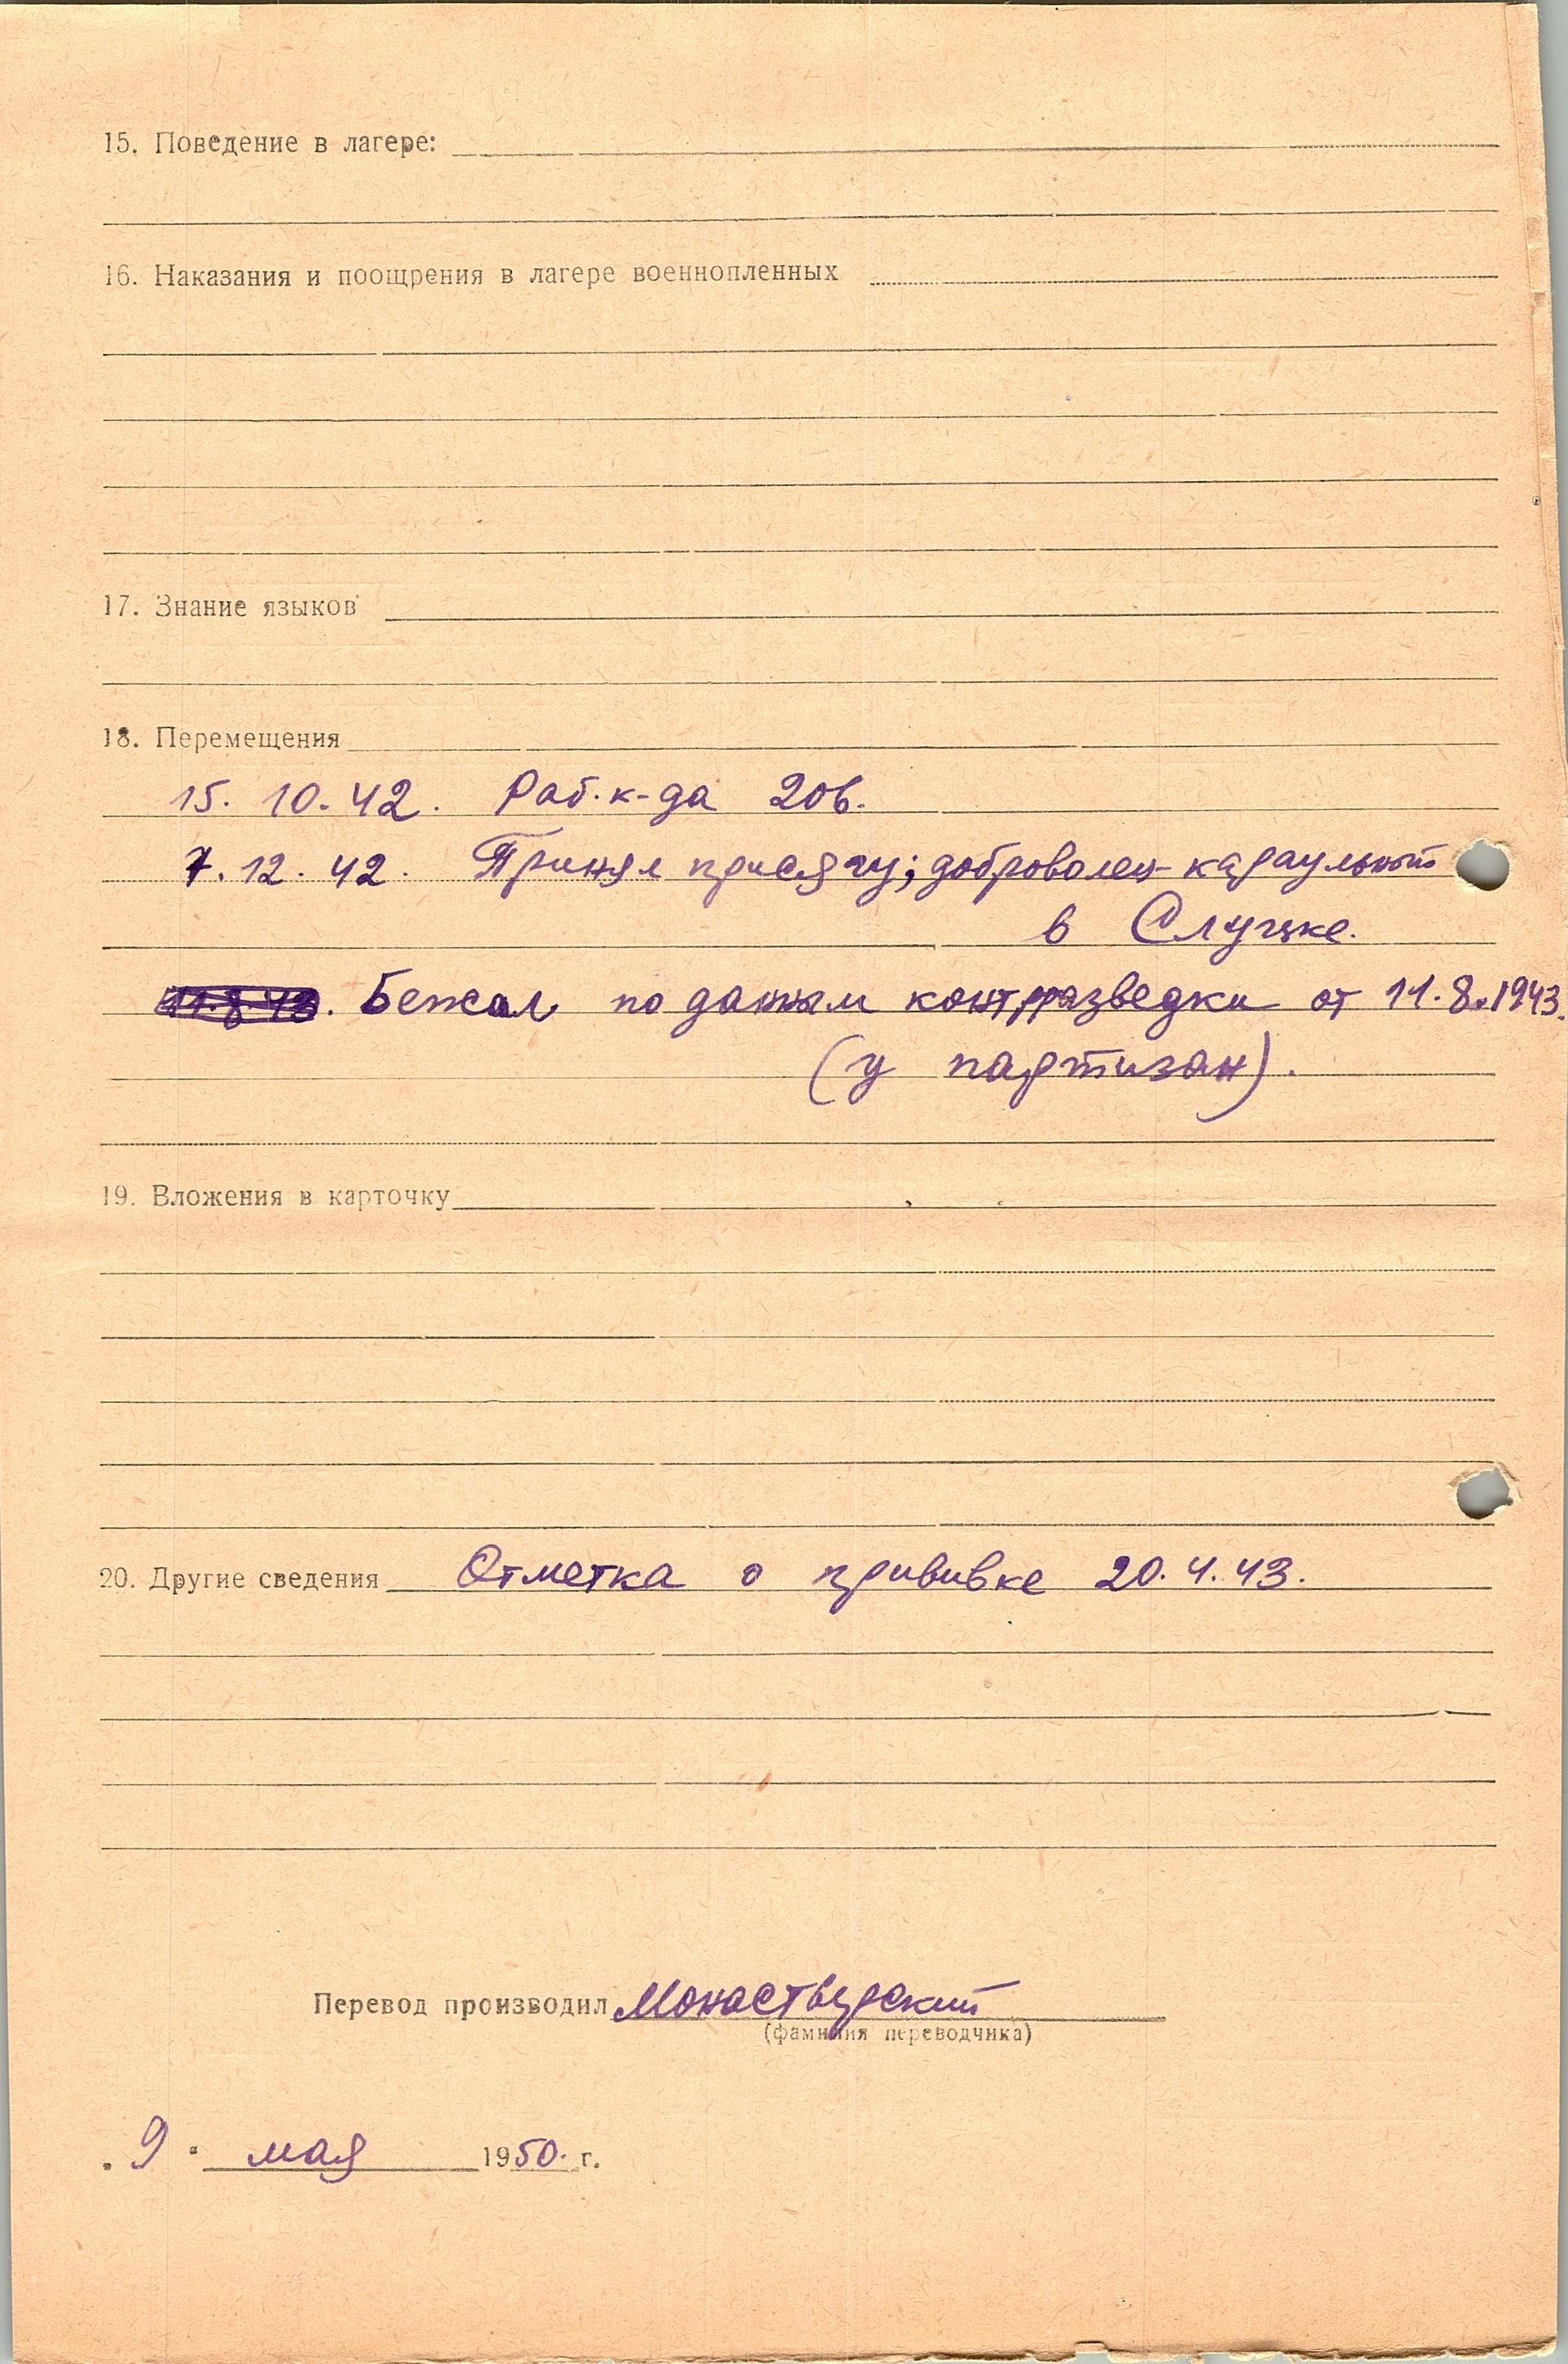 15. Поведение в лагере:
16. Наказания и поощрения в лагере военнопленных
17. Знание языков
18. Перемещения
15. 10. 42. Раб. к-да 206.
7. 12. 42. Принял присягу; доброволец-караульный
в Слуцке.
11.8.43. Бежал по данным контрразведки от 11.8.1943.
(у партизан).
19. Вложения в карточку
20. Другие сведения Отметка о прививке 20.4.43.
Перевод производил Монастырский
(фамилия переводчика)
„ 9 " мая 1950. г.